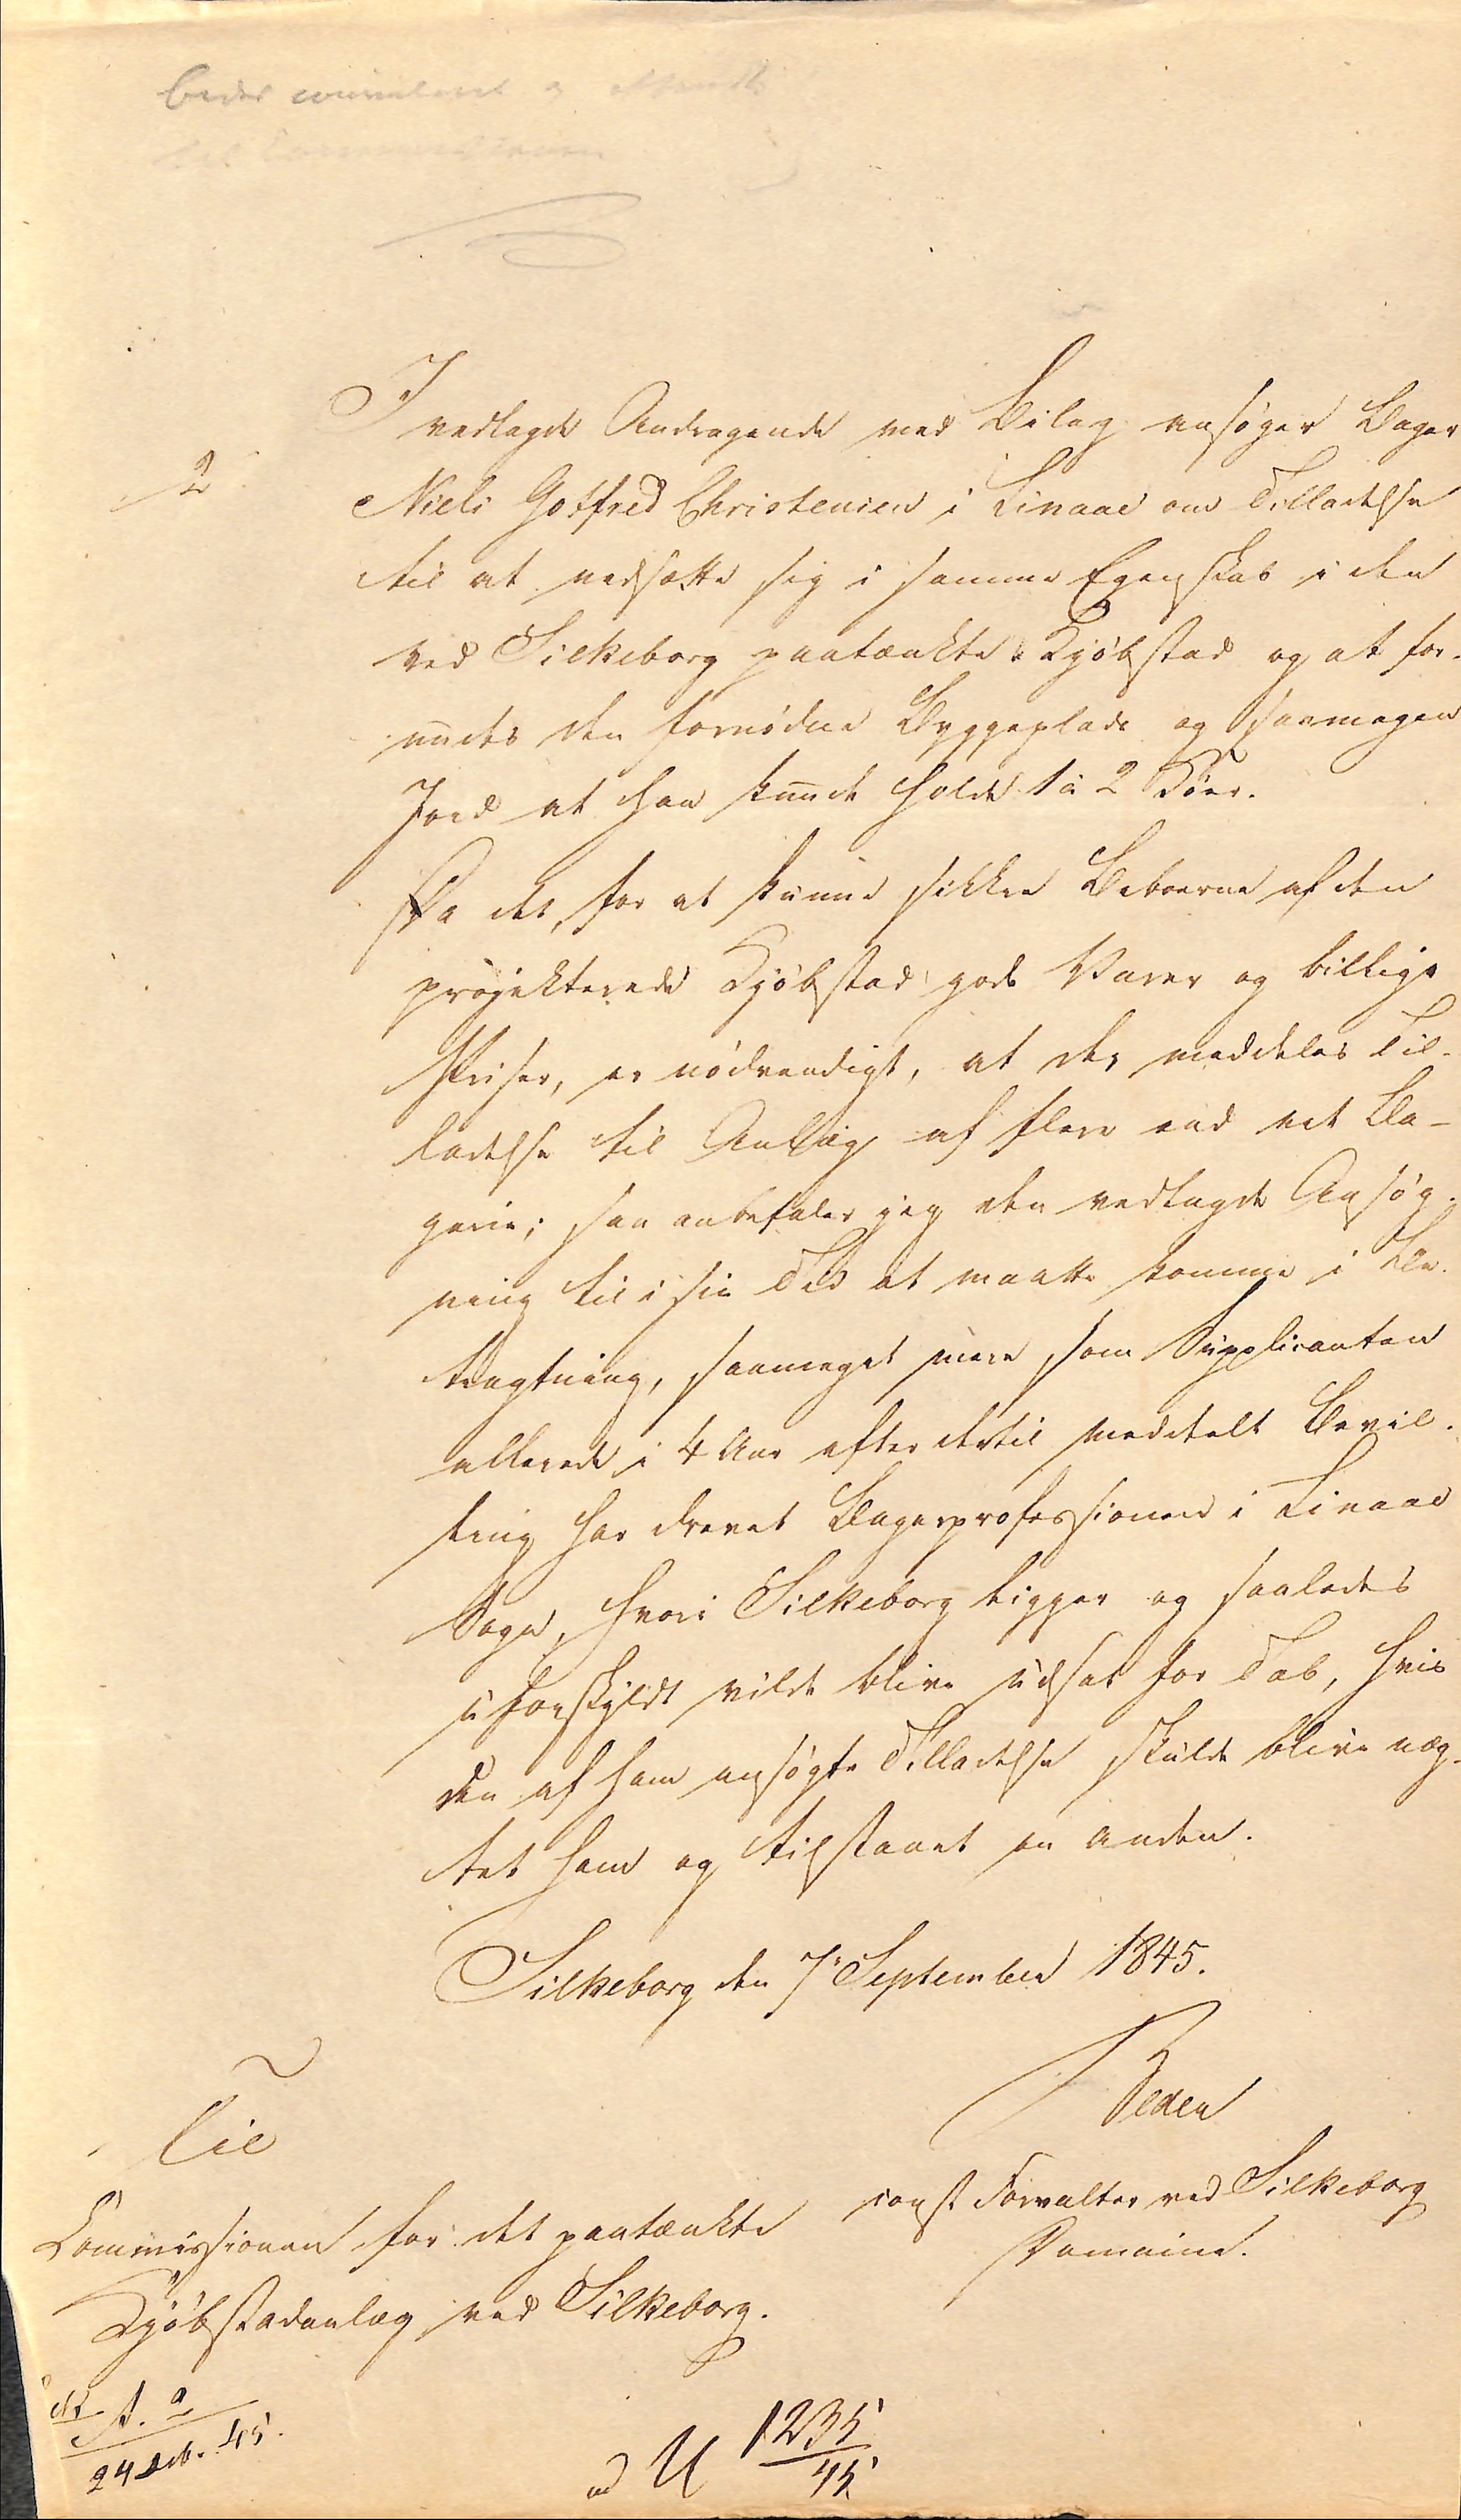 I
vedlagde Andragende med Bilag ansøger Bager
2
Niels Gotfred Christensen i Linaae om Tilladelse
til at nedsætte sig i samme Egenskab i den
ved Silkeborg paatænkte Kjøbstad og at for-
undes den fornødne Byggeplads og saamegen
Jord at han kunde holde 1 à 2 Køer.
Da det, for at kunne sikkre Beboerne af den
projekterede Kjøbstad gode Varer og billige
Priser, er nødvendigt, at der meddeles Til-
ladelse til Anlæg af flere end eet Ba-
gerie; saa anbefaler jeg den vedlagte Ansøg-
ning til i sin Tid at maatte komme i Be-
tragtning, saameget mere som Supplicanten
allerede i 4 Aar efter dertil meddelt Bevil-
ling har drevet Bagerprofessionen i Linaae
Sogn, hvori Silkeborg ligger og saaledes
uforskyldt vilde blive udsat for Tab, hvis
den af ham ansøgte Tilladelse skulde blive næg-
tet ham og tilstaaet en anden.
Silkeborg den 7' September 1845.
Bindesbøll
const Forvalter ved Silkeborg
Domaine.
Til
Commissionen for det paatænkte
Kjøbstadanlæg ved Silkeborg.
24 45.
ad U 1235/45